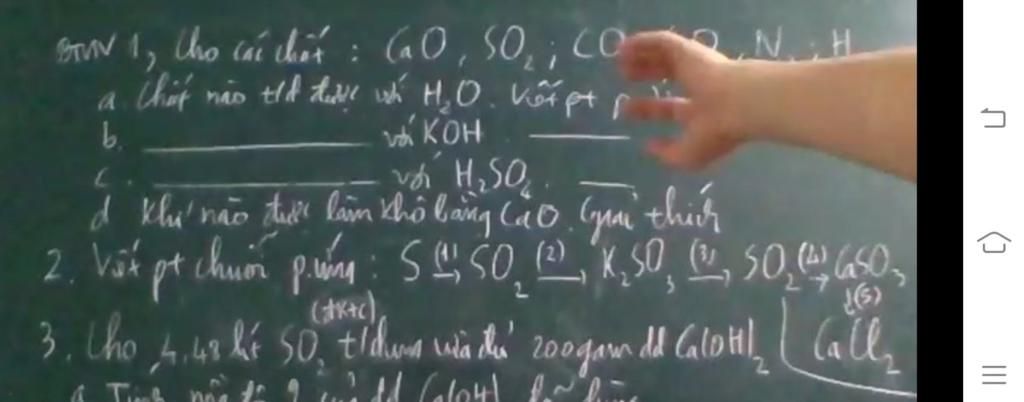 BTVN 1, Cho các chất : CaO, SO₂; CO , N ; H
a. Chất nào t/d được với H₂O. Viết pt p
b. ____ với KOH ____
c. ____ với H₂SO₄. ____
d Khí nào được làm khô bằng CaO. Giải thích
2. Viết pt chuỗi p.ứng : S (1)→ SO₂ (2)→ K₂SO₃ (3)→ SO₂ (4)→ CaSO₃
(đktc) ↓(5)
3. Cho 4,48 lít SO₂ t/dụng vừa đủ 200gam dd Ca(OH)₂ CaCl₂
a Tính nồng độ dd Ca(OH)